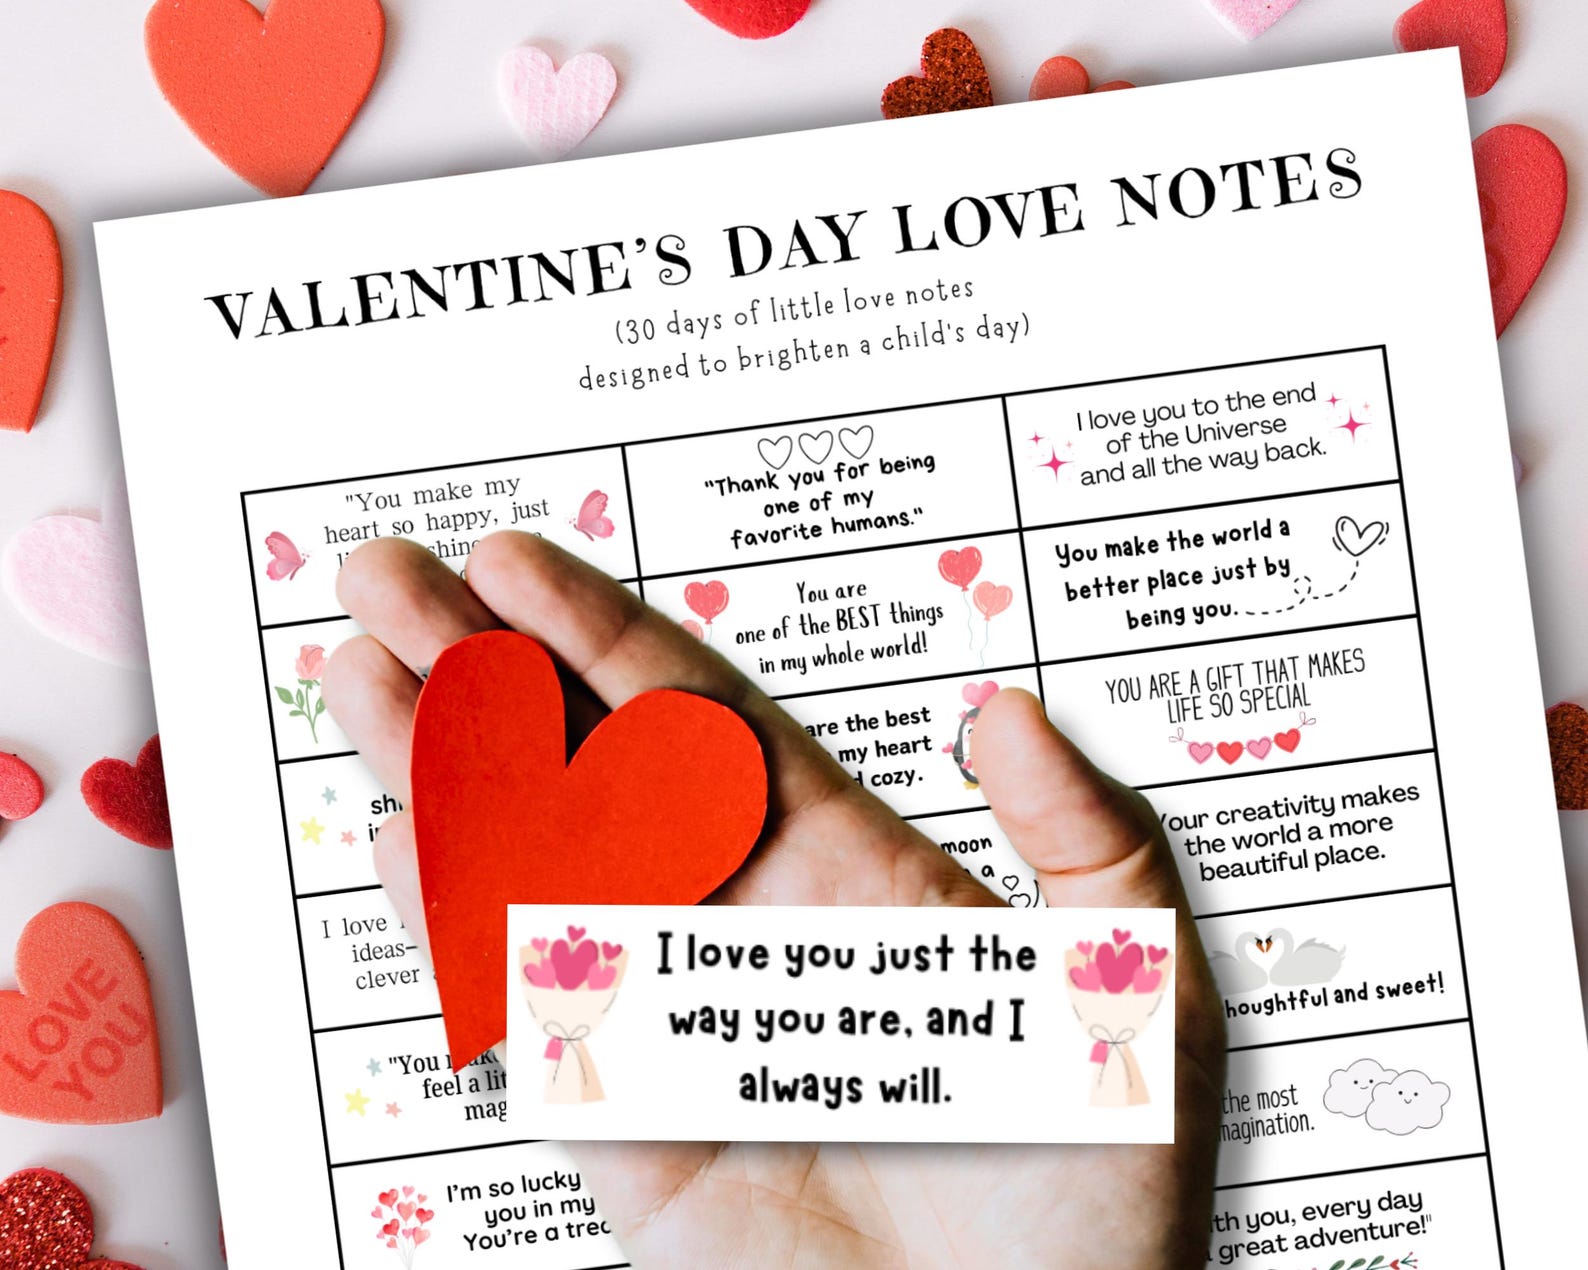 VALENTINE'S DAY LOVE NOTES
(30 days of little love notes
designed to brighten a child's day)
"You make my
heart so happy, just
"Thank you for being
one of my
favorite humans."
I love you to the end
of the Universe
and all the way back.
You are
one of the BEST things
in my whole world!
You make the world a
better place just by
being you.
are the best
my heart
cozy.
YOU ARE A GIFT THAT MAKES
LIFE SO SPECIAL
moon
a
Your creativity makes
the world a more
beautiful place.
I love
ideas–
clever
houghtful and sweet!
"You
feel a lit
mag
the most
magination.
I'm so lucky
you in my
You're a trea
th you, every day
great adventure!"
I love you just the
way you are, and I
always will.
LOVE
YOU